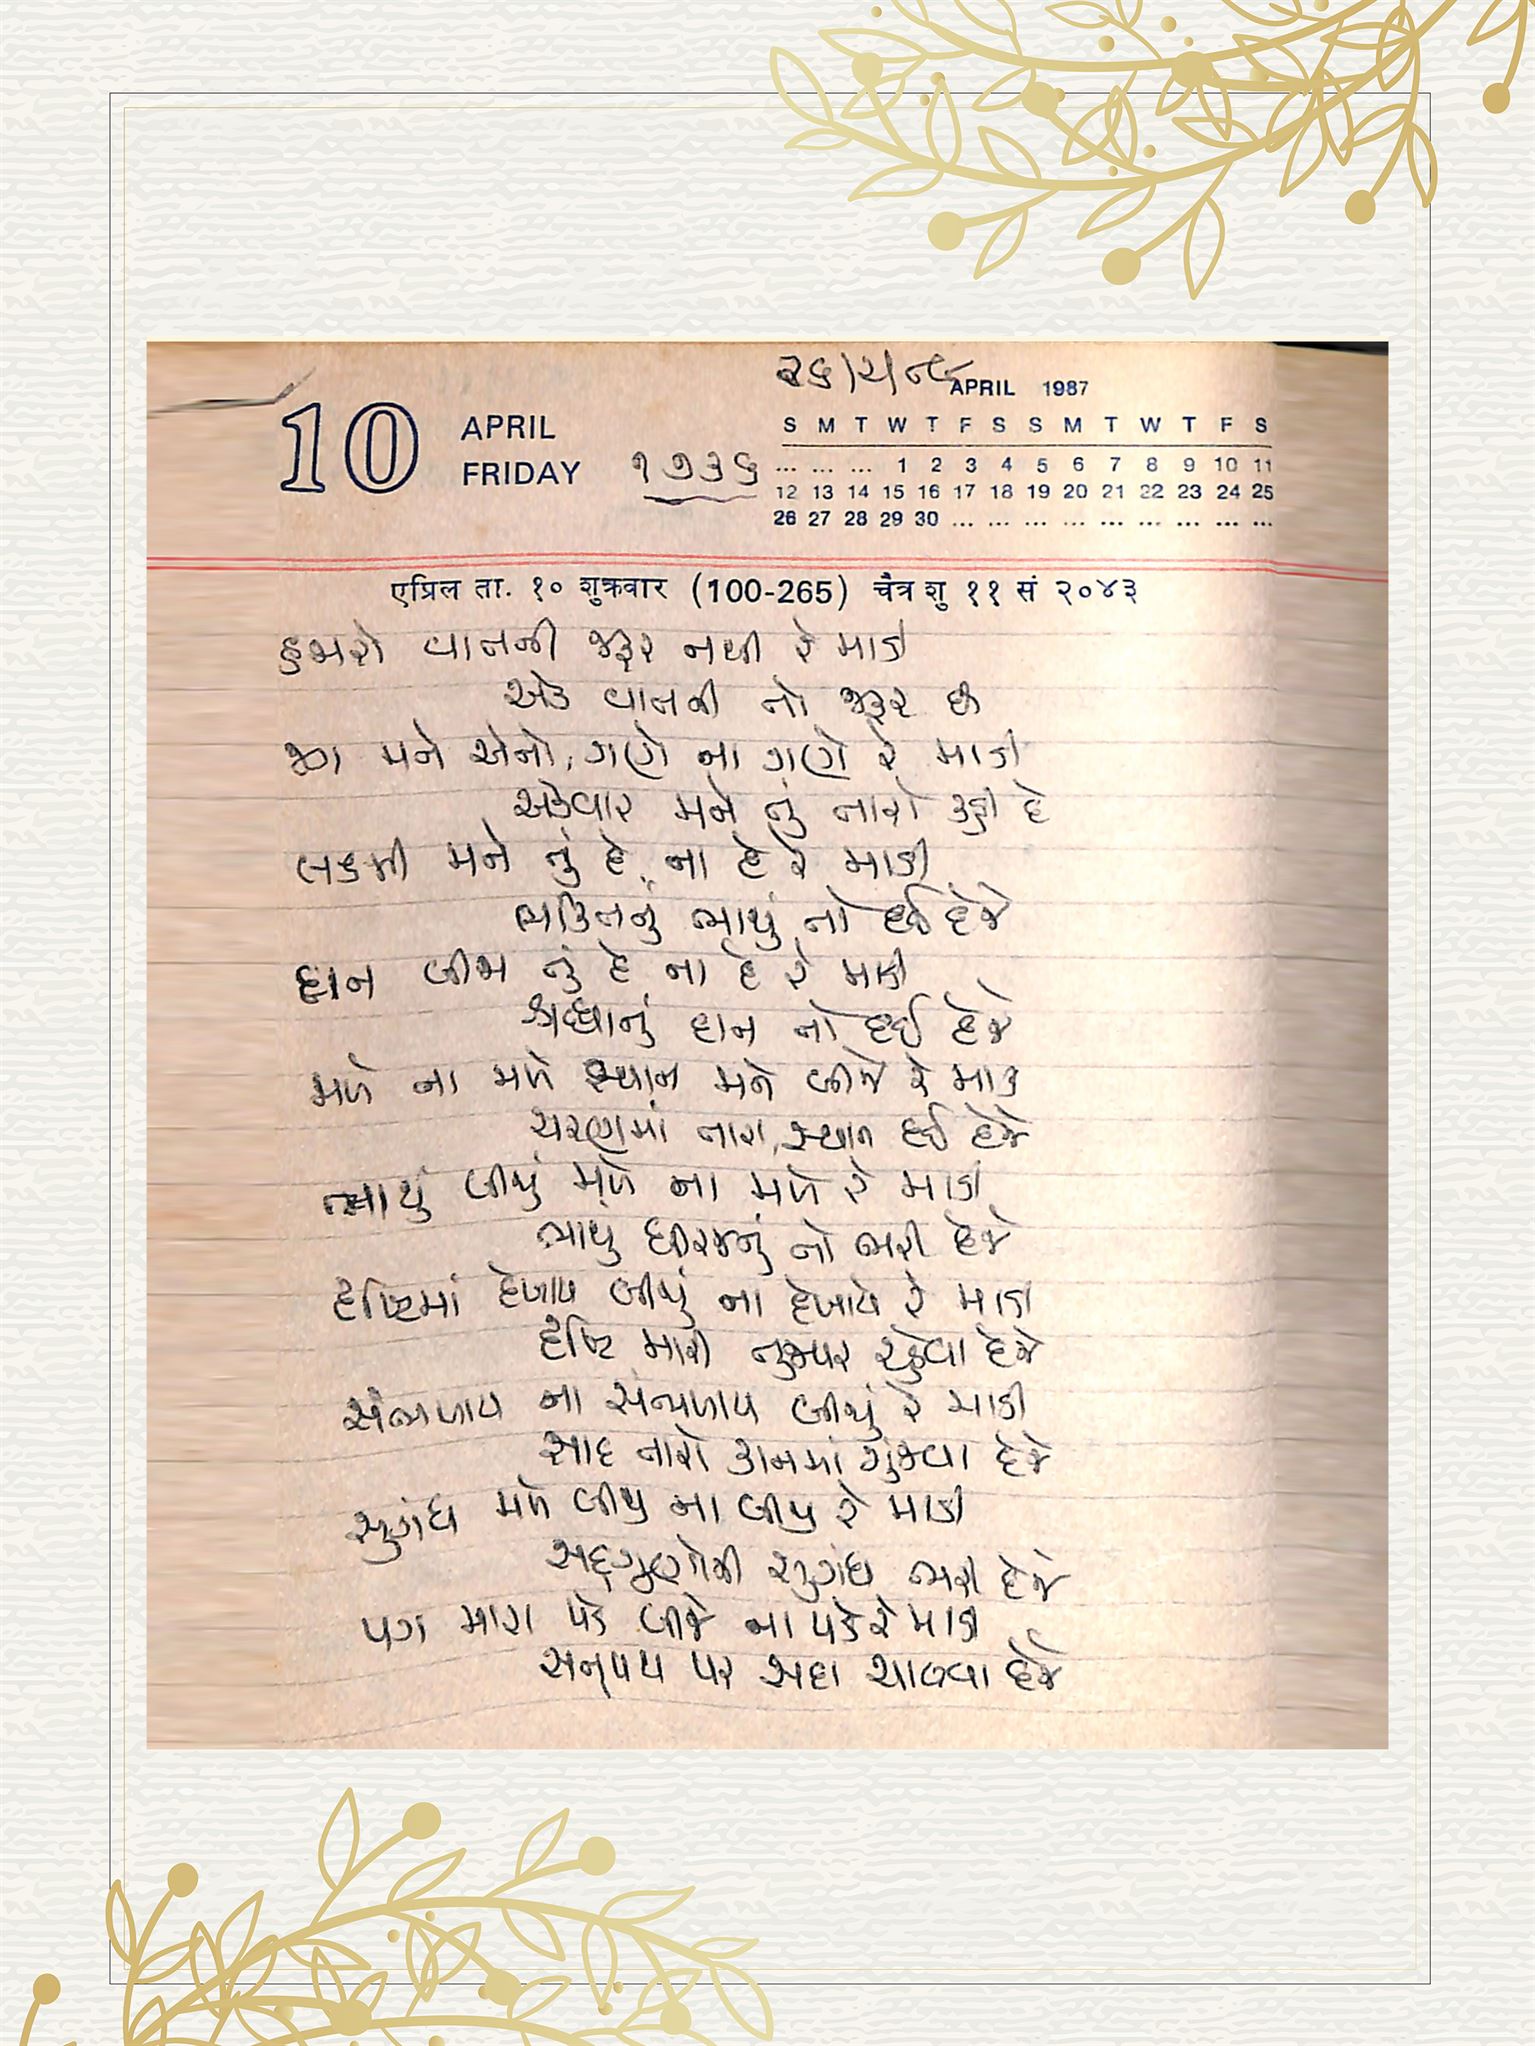 ૨૬/૨/૮૯
10 APRIL FRIDAY
૧૭૩૬
APRIL 1987
S M T W T F S S M T W T F S
... ... ... 1 2 3 4 5 6 7 8 9 10 11
12 13 14 15 16 17 18 19 20 21 22 23 24 25
26 27 28 29 30 ... ... ... ... ... ... ... ... ...
एप्रिल ता. १० शुक्रवार (100-265) चैत्र शु ११ सं २०४३
હજારો વાતની જરૂર નથી રે માડી
એક વાતની તો જરૂર છે
જગ મને એનો, ગણે ના ગણે રે માડી
એકવાર મને તું તારો કહી દે
લક્ષ્મી મને તું દે, ના દે રે માડી
ભક્તિનું ભાથું તો દઈ દેજે
દાન બીજા તું દે ના દે રે માડી
શ્રદ્ધાનું દાન તો દઈ દેજે
મળે ના મળે સ્થાન મને બીજે રે માડી
ચરણમાં તારા, સ્થાન દઈ દેજે
ભાથું બીજું મળે ના મળે રે માડી
ભાથું ધીરજનું તો ભરી દેજે
દૃષ્ટિમાં દેખાય બીજું ના દેખાયે રે માડી
દૃષ્ટિ મારી તુજપર રહેવા દેજે
સંભળાય ના સંભળાય બીજું રે માડી
સાદ તારો કાનમાં ગુંજવા દેજે
સુગંધ મળે બીજી ના બીજી રે માડી
સદ્ગુણોની સુગંધ ભરી દેજે
પગ મારા પડે બીજે ના પડે રે માડી
સત્પથ પર સદા ચાલવા દેજે